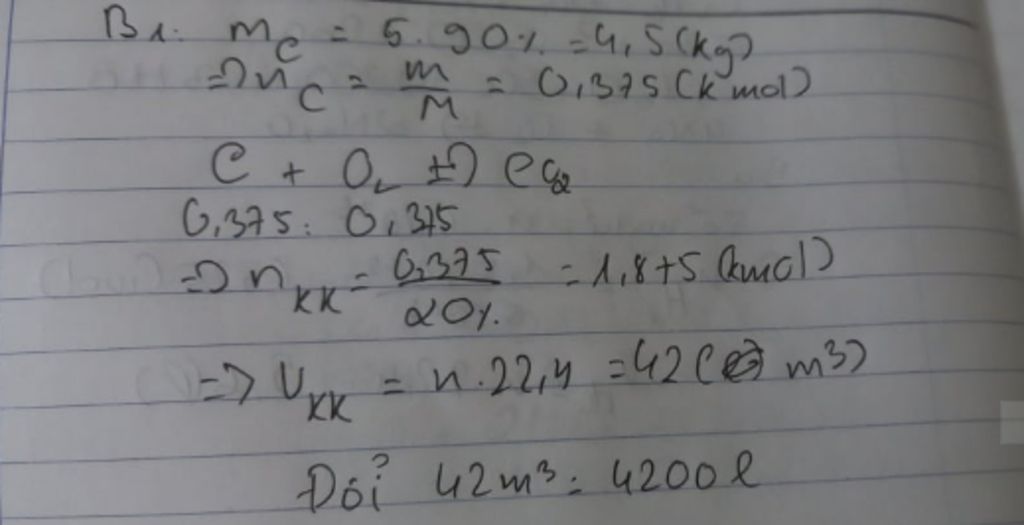 B1: mC = 5.90% = 4,5 (kg)
=> nC = m/M = 0,375 (kmol)
C + O2 t=> CO2
0,375: 0,375
=> nKK = 0,375/20% = 1,875 (kmol)
=> VKK = n.22,4 = 42 (m3)
Đổi 42m3 = 4200l